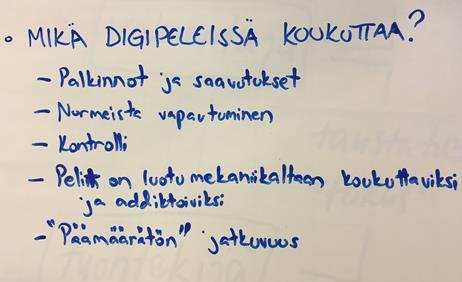 • MIKÄ DIGIPELEISSÄ KOUKUTTAA?
– Palkinnot ja saavutukset
– Normeista vapautuminen
– Kontrolli
– Pelit on luotu mekaniikaltaan koukuttaviksi
ja addiktoiviksi
– "Päämäärätön" jatkuvuus